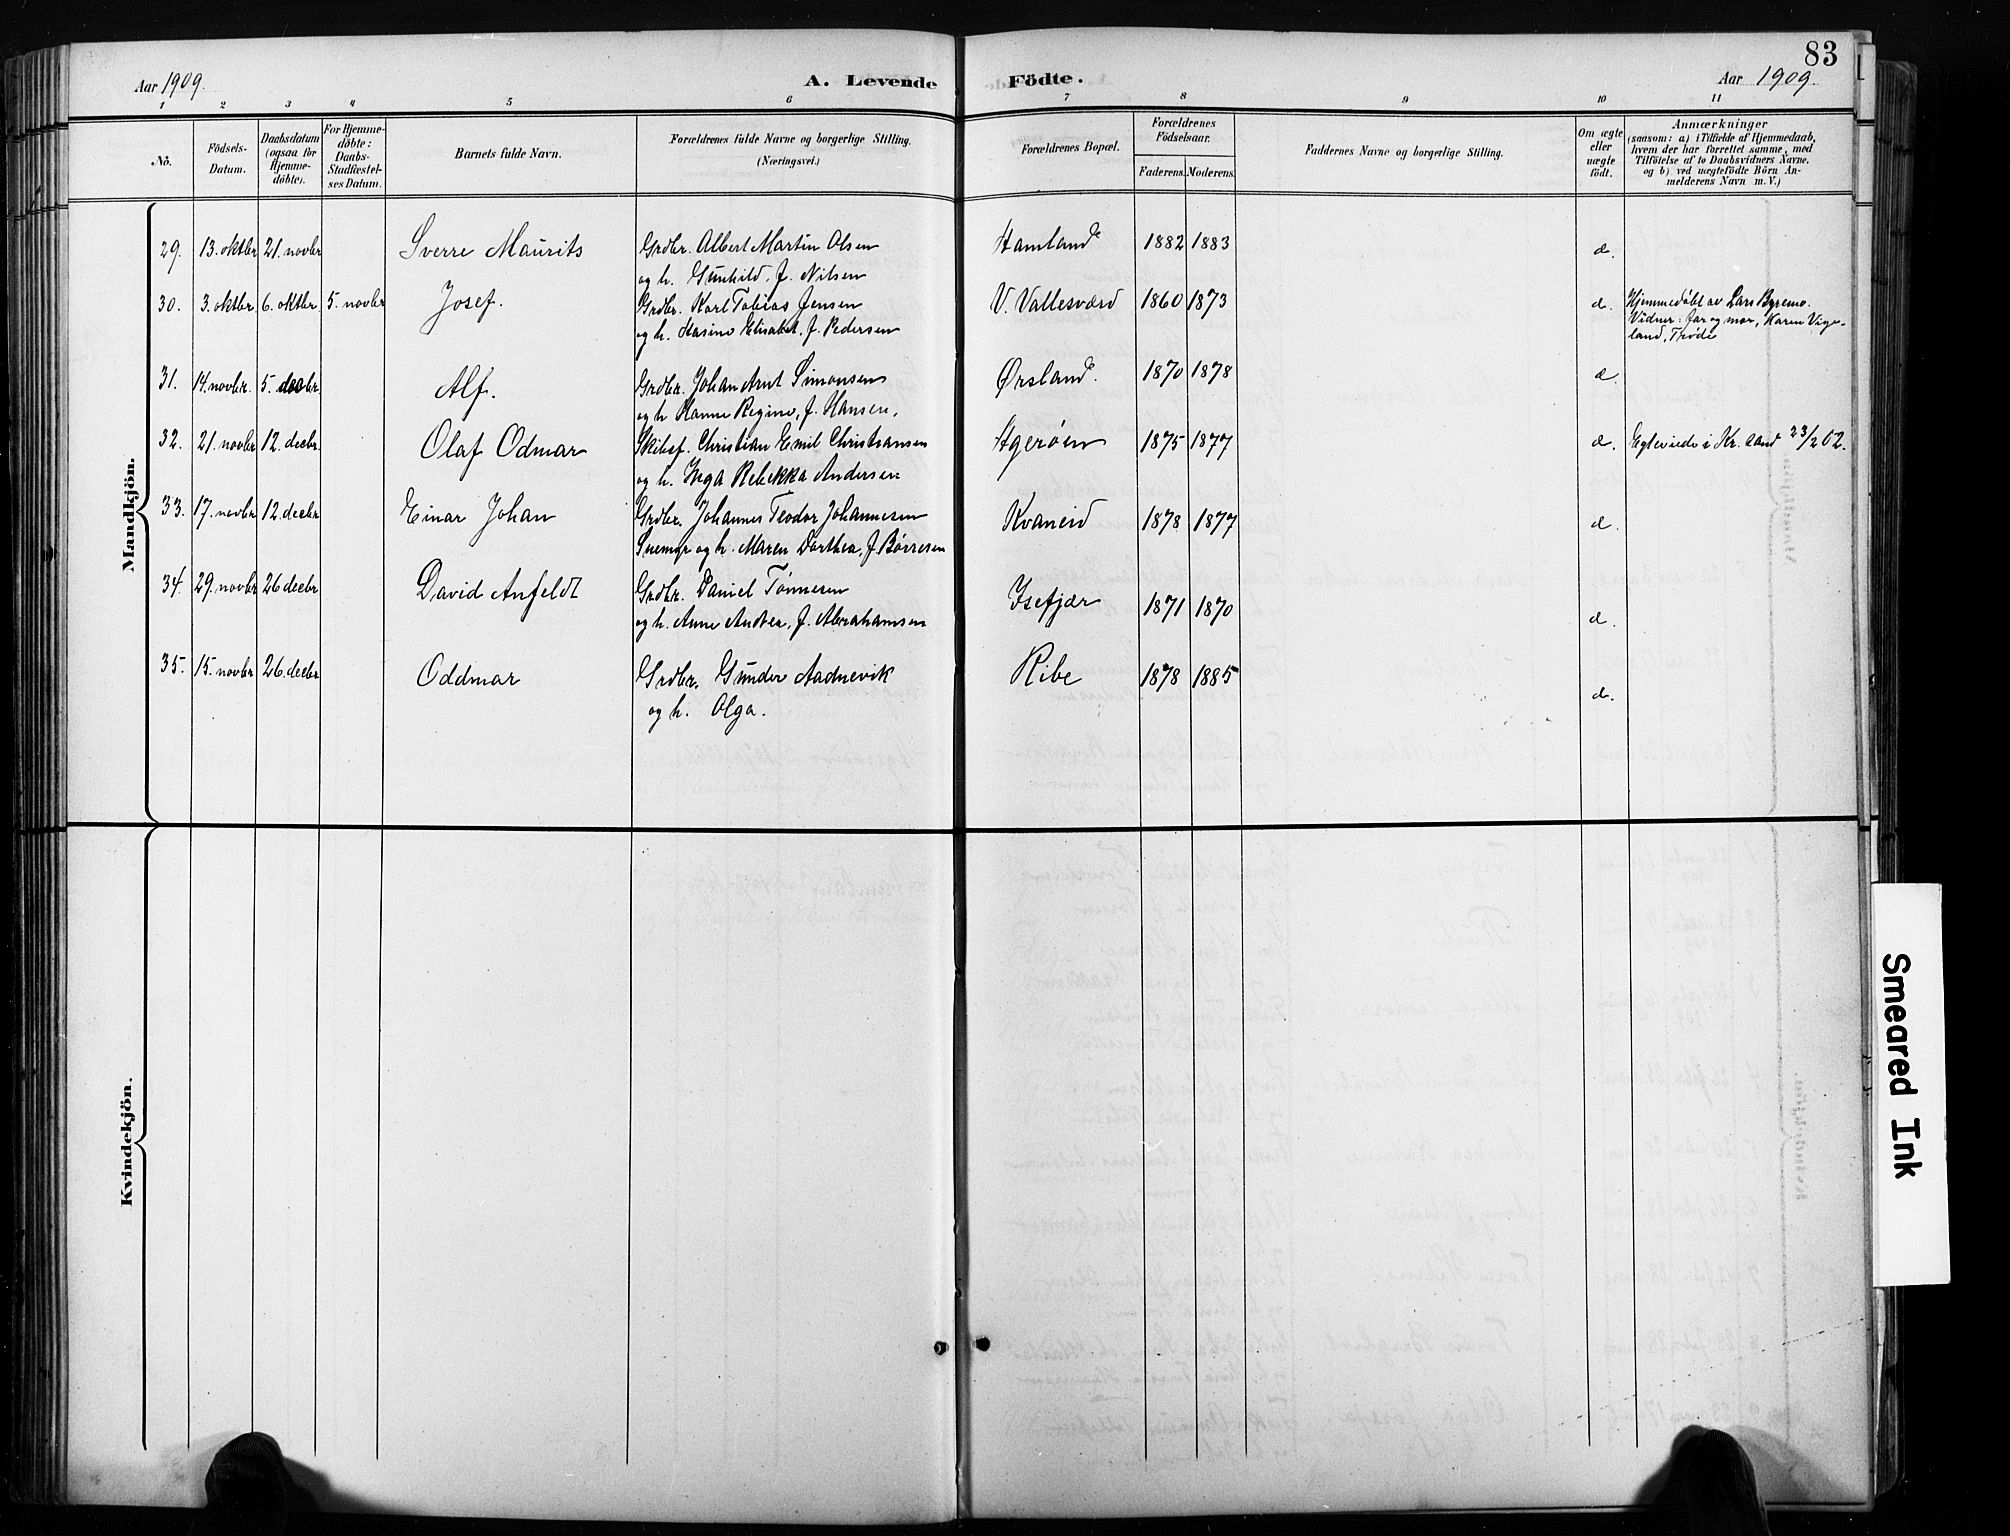 83
Aar 1909.
A. Levende Födte.
Aar 1909.
1 2 3 4 5 6 7 8 9 10 11
No.
Födsels-Datum.
Daabsdatum (ogsaa for Hjemme-döbte).
For Hjemme-döbte: Daabs-Stadfæstel-ses Datum.
Barnets fulde Navn.
Forældrenes fulde Navne og borgerlige Stilling. (Næringsvei.)
Forældrenes Bopæl.
Forældrenes Födselsaar.
Faderens. Moderens.
Faddernes Navne og borgerlige Stilling.
Om ægte eller uægte födt.
Anmærkninger
(saasom: a) i Tilfælde af Hjemmedaab, hvem der har forrettet samme, med Tilföielse af to Daabsvidners Navne. og b) ved uægtefödte Börn An-melderens Navn m. V.)
Mandkjön.
29. 13. oktbr 21. novbr Sverre Maurits Grdbr. Albert Martin Olsen Hamland 1882 1883 æ.
og h. Gunhild, f. Nilsen
30. 3. oktbr 6. oktbr 5. novbr Josef. Grdbr. Karl Tobias Jensen V. Vallesværd 1860 1873 æ. Hjemmedøbt av Lars Byremo.
og h. Hasine Elisabet, f. Pedersen Vidner: far og mor, Karen Vige-
land, Trøde
31. 14. novbr. 5. decbr. Alf. Grdbr. Johan Arnt Simonsen Ørsland. 1870 1878 æ.
og h Hanne Regine, f. Hansen.
32. 21. novbr 12. decbr. Olaf Odmar Skibsf. Christian Emil Christiansen Hgerøen 1875 1877 æ. Egteviede i Kr.sand 23/2 02.
og h. Inga Rebekka Andersen
33. 17. novbr 12. decbr Einar Johan Grdbr. Johannes Teodor Johannesen Kvaneid 1878 1877 æ.
Snemyr og h. Maren Dorthea, f. Børresen
34. 29. novbr 26 decbr David Anfeldt Grdbr. Daniel Tønnesen Isefjær 1871 1870 æ.
og h. Anne Andrea, f. Abrahamsen
35. 15. novbr 26. decbr Oddmar Grdbr. Gunder Aadnevik Ribe 1878 1885 æ.
og h. Olga.
Kvindekjön.
Smeared Ink